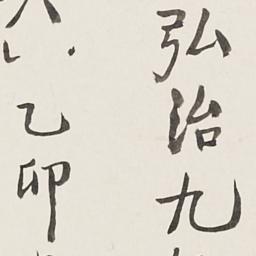 弘治九
乙卯